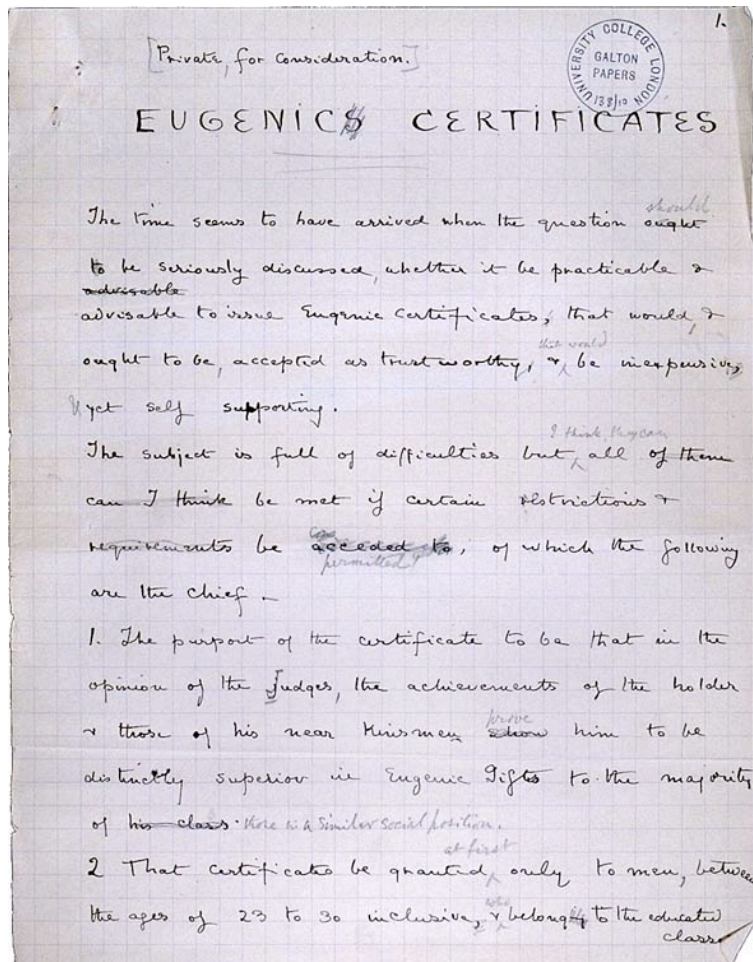 1.
[Private, for consideration.]
UNIVERSITY COLLEGE LONDON
GALTON
PAPERS
138/10
EUGENICS CERTIFICATES
should
The time seems to have arrived when the question ought
to be seriously discussed, whether it be practicable &
advisable
advisable to issue Eugenic Certificates, that would, &
that would
ought to be, accepted as trustworthy, & be inexpensive,
& yet self supporting.
I think they can
The subject is full of difficulties but all of them
can I think be met if certain restrictions &
requirements be acceded to, of which the following
permitted
are the chief –
1. The purport of the certificate to be that in the
opinion of the Judges, the achievements of the holder
prove
& those of his near Kinsmen show him to be
distinctly superior in Eugenic Gifts to the majority
of his class. those in a similar social position.
at first
2 That certificates be granted only to men, between
who
the ages of 23 to 30 inclusive, & belong to the educated
classes